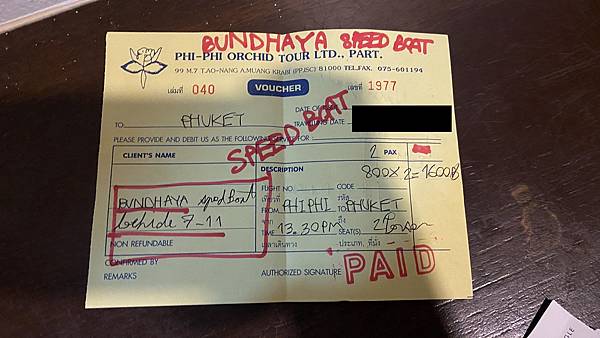 BUNDHAYA SPEED BOAT
PHI-PHI ORCHID TOUR LTD., PART.
99 M.7 T.AO-NANG A.MUANG KRABI (PPJSC) 81000 TEL,FAX. 075-601194
เล่มที่ 040 VOUCHER เลขที่ 1977
DATE OF
TO PHUKET TRAVELLING DATE
SPEED BOAT
PLEASE PROVIDE AND DEBIT US AS THE FOLLOWING SERVICE FOR:
CLIENT'S NAME 2 PAX
DESCRIPTION 800X2=1600B
FLIGHT NO. CODE
BUNDHAYA speed boat เที่ยวที่ รหัส
FROM PHIPHI TO PHUKET
behide 7-11 จาก ถึง
TIME 13.30PM SEAT(S) 2
NON REFUNDABLE เวลาเดินทาง ประเภท, ที่นั่ง
CONFIRMED BY
REMARKS AUTHORIZED SIGNATURE PAID